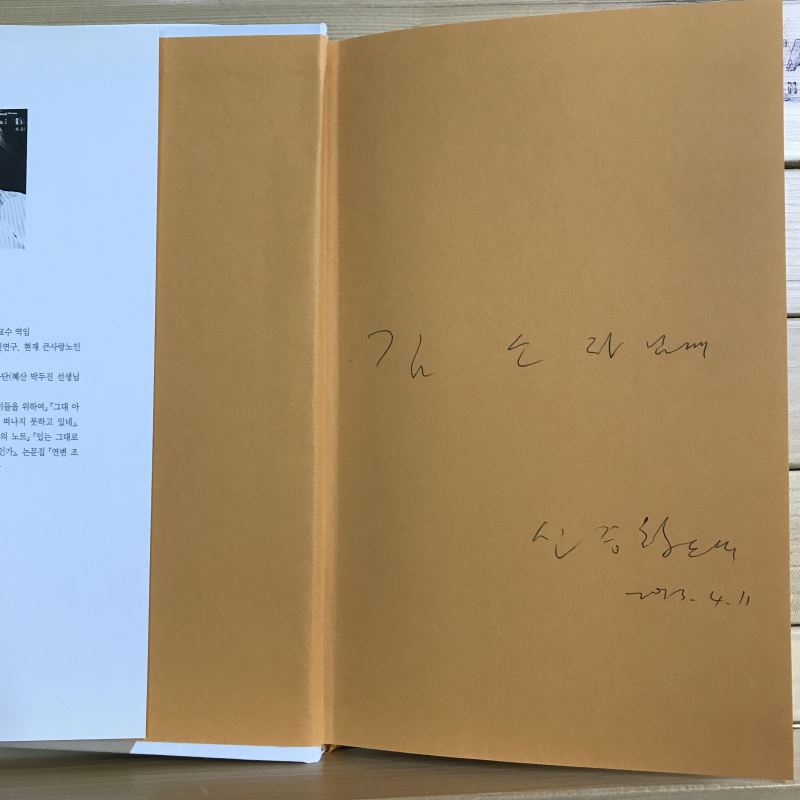 교수 역임
연구, 현재 큰사랑노인
단(혜산 박두진 선생님
이들을 위하여』 『그대 아
떠나지 못하고 있네』,
의 노트』 『있는 그대로
인가』, 논문집 『연변 조
김 소 라 님께
신승철 드림
2023. 4. 11